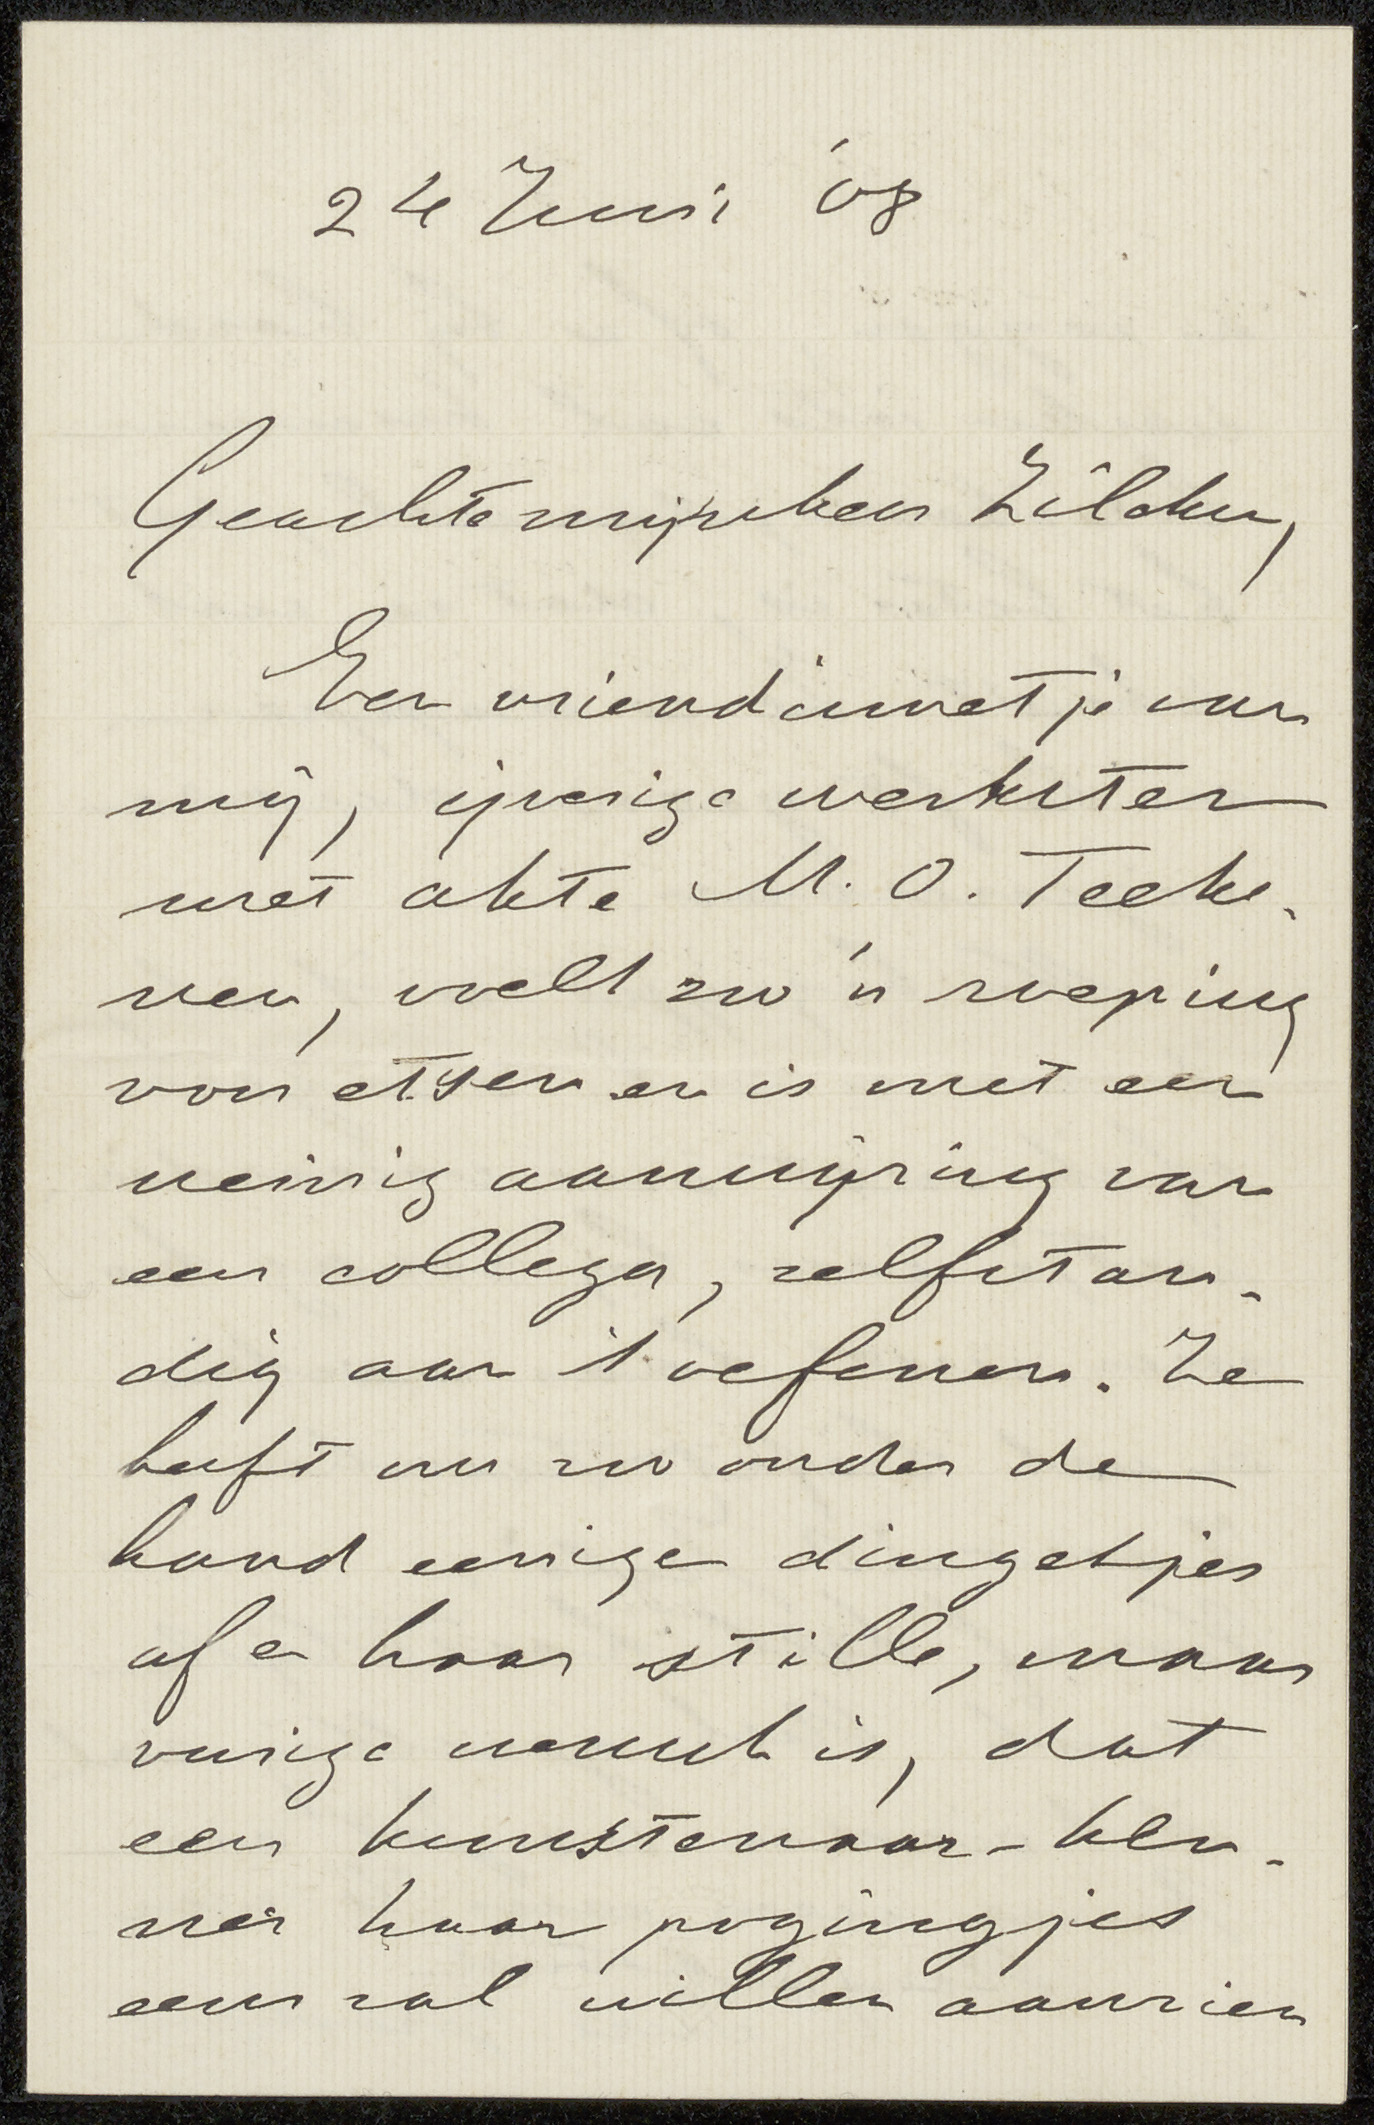 24 Juni '08
Geachte mijnheer Zilcken,
Een vriendinnetje van
mij, ijverige werkster
met akte M. O. Teeke-
nen, voelt zoo 'n roeping
voor etsen en is met een
weinig aanwijzing van
een collega, zelfstan-
dig aan 't oefenen. Ze
heeft nu zoo onder de
hand eenige dingetjes
af en haar stille, maar
vurige wensch is, dat
een kunstenaar-ken-
ner haar pogingjes
eens zal willen aanzien